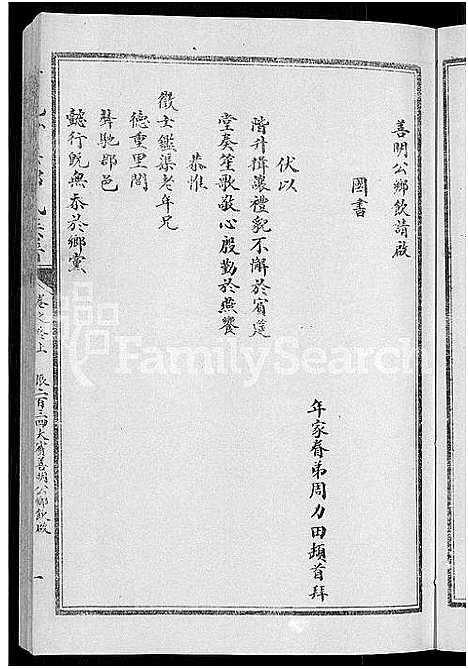 善明公鄉飲請啟
圖書
年家眷弟周力田頓首拜
伏以
階升揖讓禮貌不懈於賓筵
堂奏笙歌敬心殷勤於燕饗
恭惟
徵士鑑渠老年兄
德重里閭
聲馳郡邑
懿行既無忝於鄉黨
卷之終上
派二百三四大賓善明公鄉飲啟
一
FamilySearch